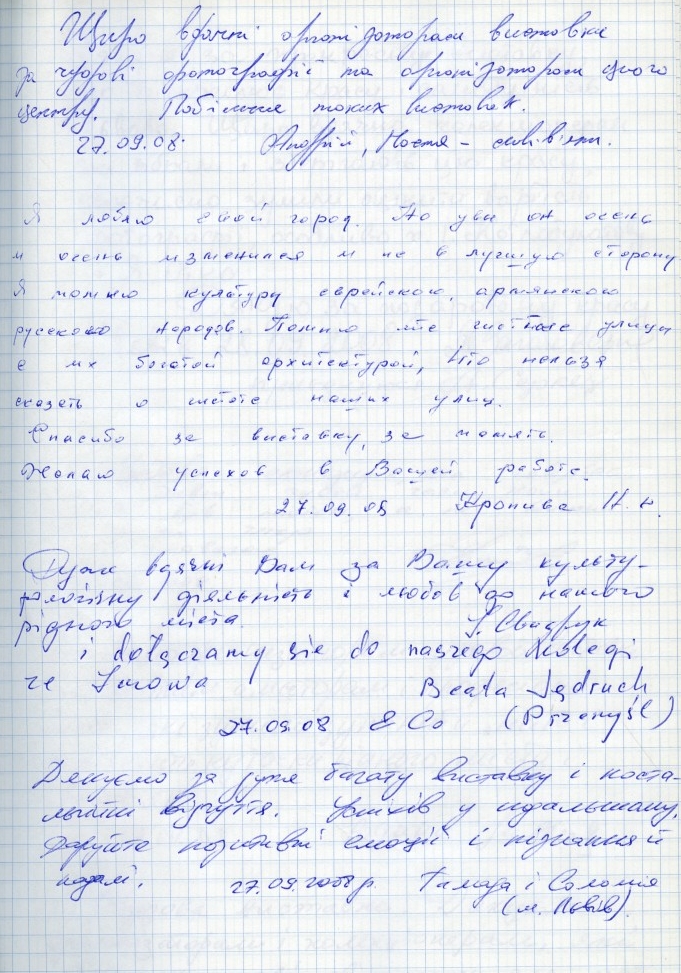 Щиро вдячні організаторам виставки
за чудові фотографії та організаторам цього
центру. Побільше таких виставок.
27.09.08. Андрій, Настя – львів'яни.
Я люблю свой город. Но увы он очень
и очень изменился и не в лучшую сторону
Я помню культуру еврейского, армянского
русского народов. Помню те чистые улицы
с их богатой архитектурой, что нельзя
сказать о чистоте наших улиц.
Спасибо за выставку, за память.
Желаю успехов в Вашей работе.
27.09.08 Кропива Н. Н.
Дуже вдячні Вам за Вашу культу-
рологічну діяльність і любов до нашого
рідного міста.
і dołączamy się do naszego kolegi
ze Lwowa Beata Jędruch
27.09.08 & Co (Przemyśl)
Дякуємо за дуже багату виставку і носта-
льгійні відчуття. Успіхів у подальшому,
даруйте позитивні емоції і пізнання й
надалі. 27.09.2008 р. Тамара і Соломія
(м. Львів).